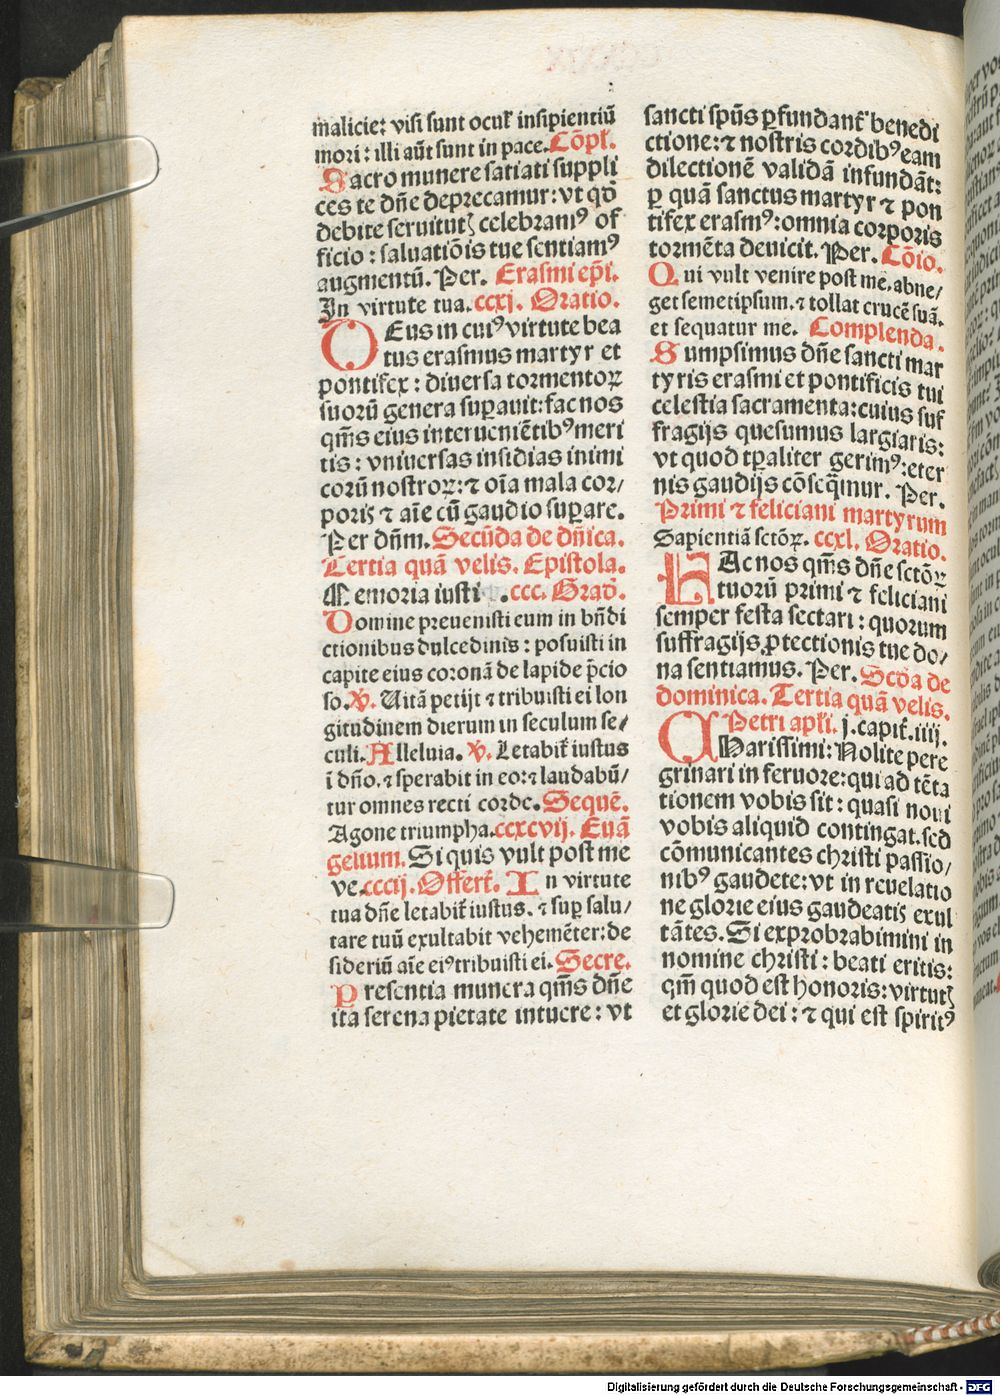 malicie: visi sunt oculꝭ insipientiū
mori: illi aūt sunt in pace. Cōpl̄.
Sacro munere satiati suppli
ces te dn̄e deprecamur: vt qd̄
debite seruitutꝭ celebramꝰ of
ficio: saluatiōis tue sentiamꝰ
augmentū. Per. Erasmi ep̄i.
In virtute tua. ccxj. Oratio.
DEus in cuiꝰ virtute bea
tus erasmus martyr et
pontifex: diuersa tormentoꝝ
suorū genera suꝑauit: fac nos
qm̄s eius interueniētibꝰ meri
tis: vniuersas insidias inimi
corū nostroꝝ: ⁊ oīa mala cor/
poris ⁊ aīe cū gaudio suꝑare.
Per dn̄m. Secūda de dn̄ica.
Tertia quā velis. Epistola.
Memoria iusti. ccc. Grad̄.
Domine preuenisti eum in bn̄di
ctionibus dulcedinis: posuisti in
capite eius coronā de lapide p̄cio
so. V̄. Uitā petijt ⁊ tribuisti ei lon
gitudinem dierum in seculum se/
culi. Alleluia. V̄. Letabit̄ iustus
ī dn̄o. ⁊ sperabit in eo: ⁊ laudabū/
tur omnes recti corde. Sequē.
Agone triumpha. ccxcvij. Euā
gelium. Si quis vult post me
ve. cccij. Offert̄. In virtute
tua dn̄e letabit̄ iustus. ⁊ suꝑ salu/
tare tuū exultabit vehemēter: de
sideriū aīe eiꝰ tribuisti ei. Secre.
Presentia munera qm̄s dn̄e
ita serena pietate intuere: vt
sancti spūs ꝑfundant̄ benedi
ctione: ⁊ nostris cordibꝰ eam
dilectionē validā infundāt:
ꝑ quā sanctus martyr ⁊ pon
tifex erasmꝰ: omnia corporis
tormēta deuicit. Per. Cōio.
Qui vult venire post me. abne/
get semetipsum. ⁊ tollat crucē suā.
et sequatur me. Complenda.
Sumpsimus dn̄e sancti mar
tyris erasmi et pontificis tui
celestia sacramenta: cuius suf
fragijs quesumus largiaris:
vt quod tꝑaliter gerimꝰ: eter
nis gaudijs cōseq̄mur. Per.
Primi ⁊ feliciani martyrum
Sapientiā sctōꝝ. ccxl. Oratio.
FAc nos qm̄s dn̄e sctōꝝ
tuorū primi ⁊ feliciani
semper festa sectari: quorum
suffragijs ꝓtectionis tue do/
na sentiamus. Per. Scd̄a de
dominica. Tertia quā velis.
Petri apl̄i. j. capit̄. iiij.
CHarissimi: Nolite pere
grinari in feruore: qui ad tēta
tionem vobis sit: quasi noui
vobis aliquid contingat. sed
cōmunicantes christi passio/
nibꝰ gaudete: vt in reuelatio
ne glorie eius gaudeatis exul
tātes. Si exprobrabimini in
nomine christi: beati eritis:
qm̄ quod est honoris: virtutꝭ
et glorie dei: ⁊ qui est spiritꝰ
Digitalisierung gefördert durch die Deutsche Forschungsgemeinschaft - DFG